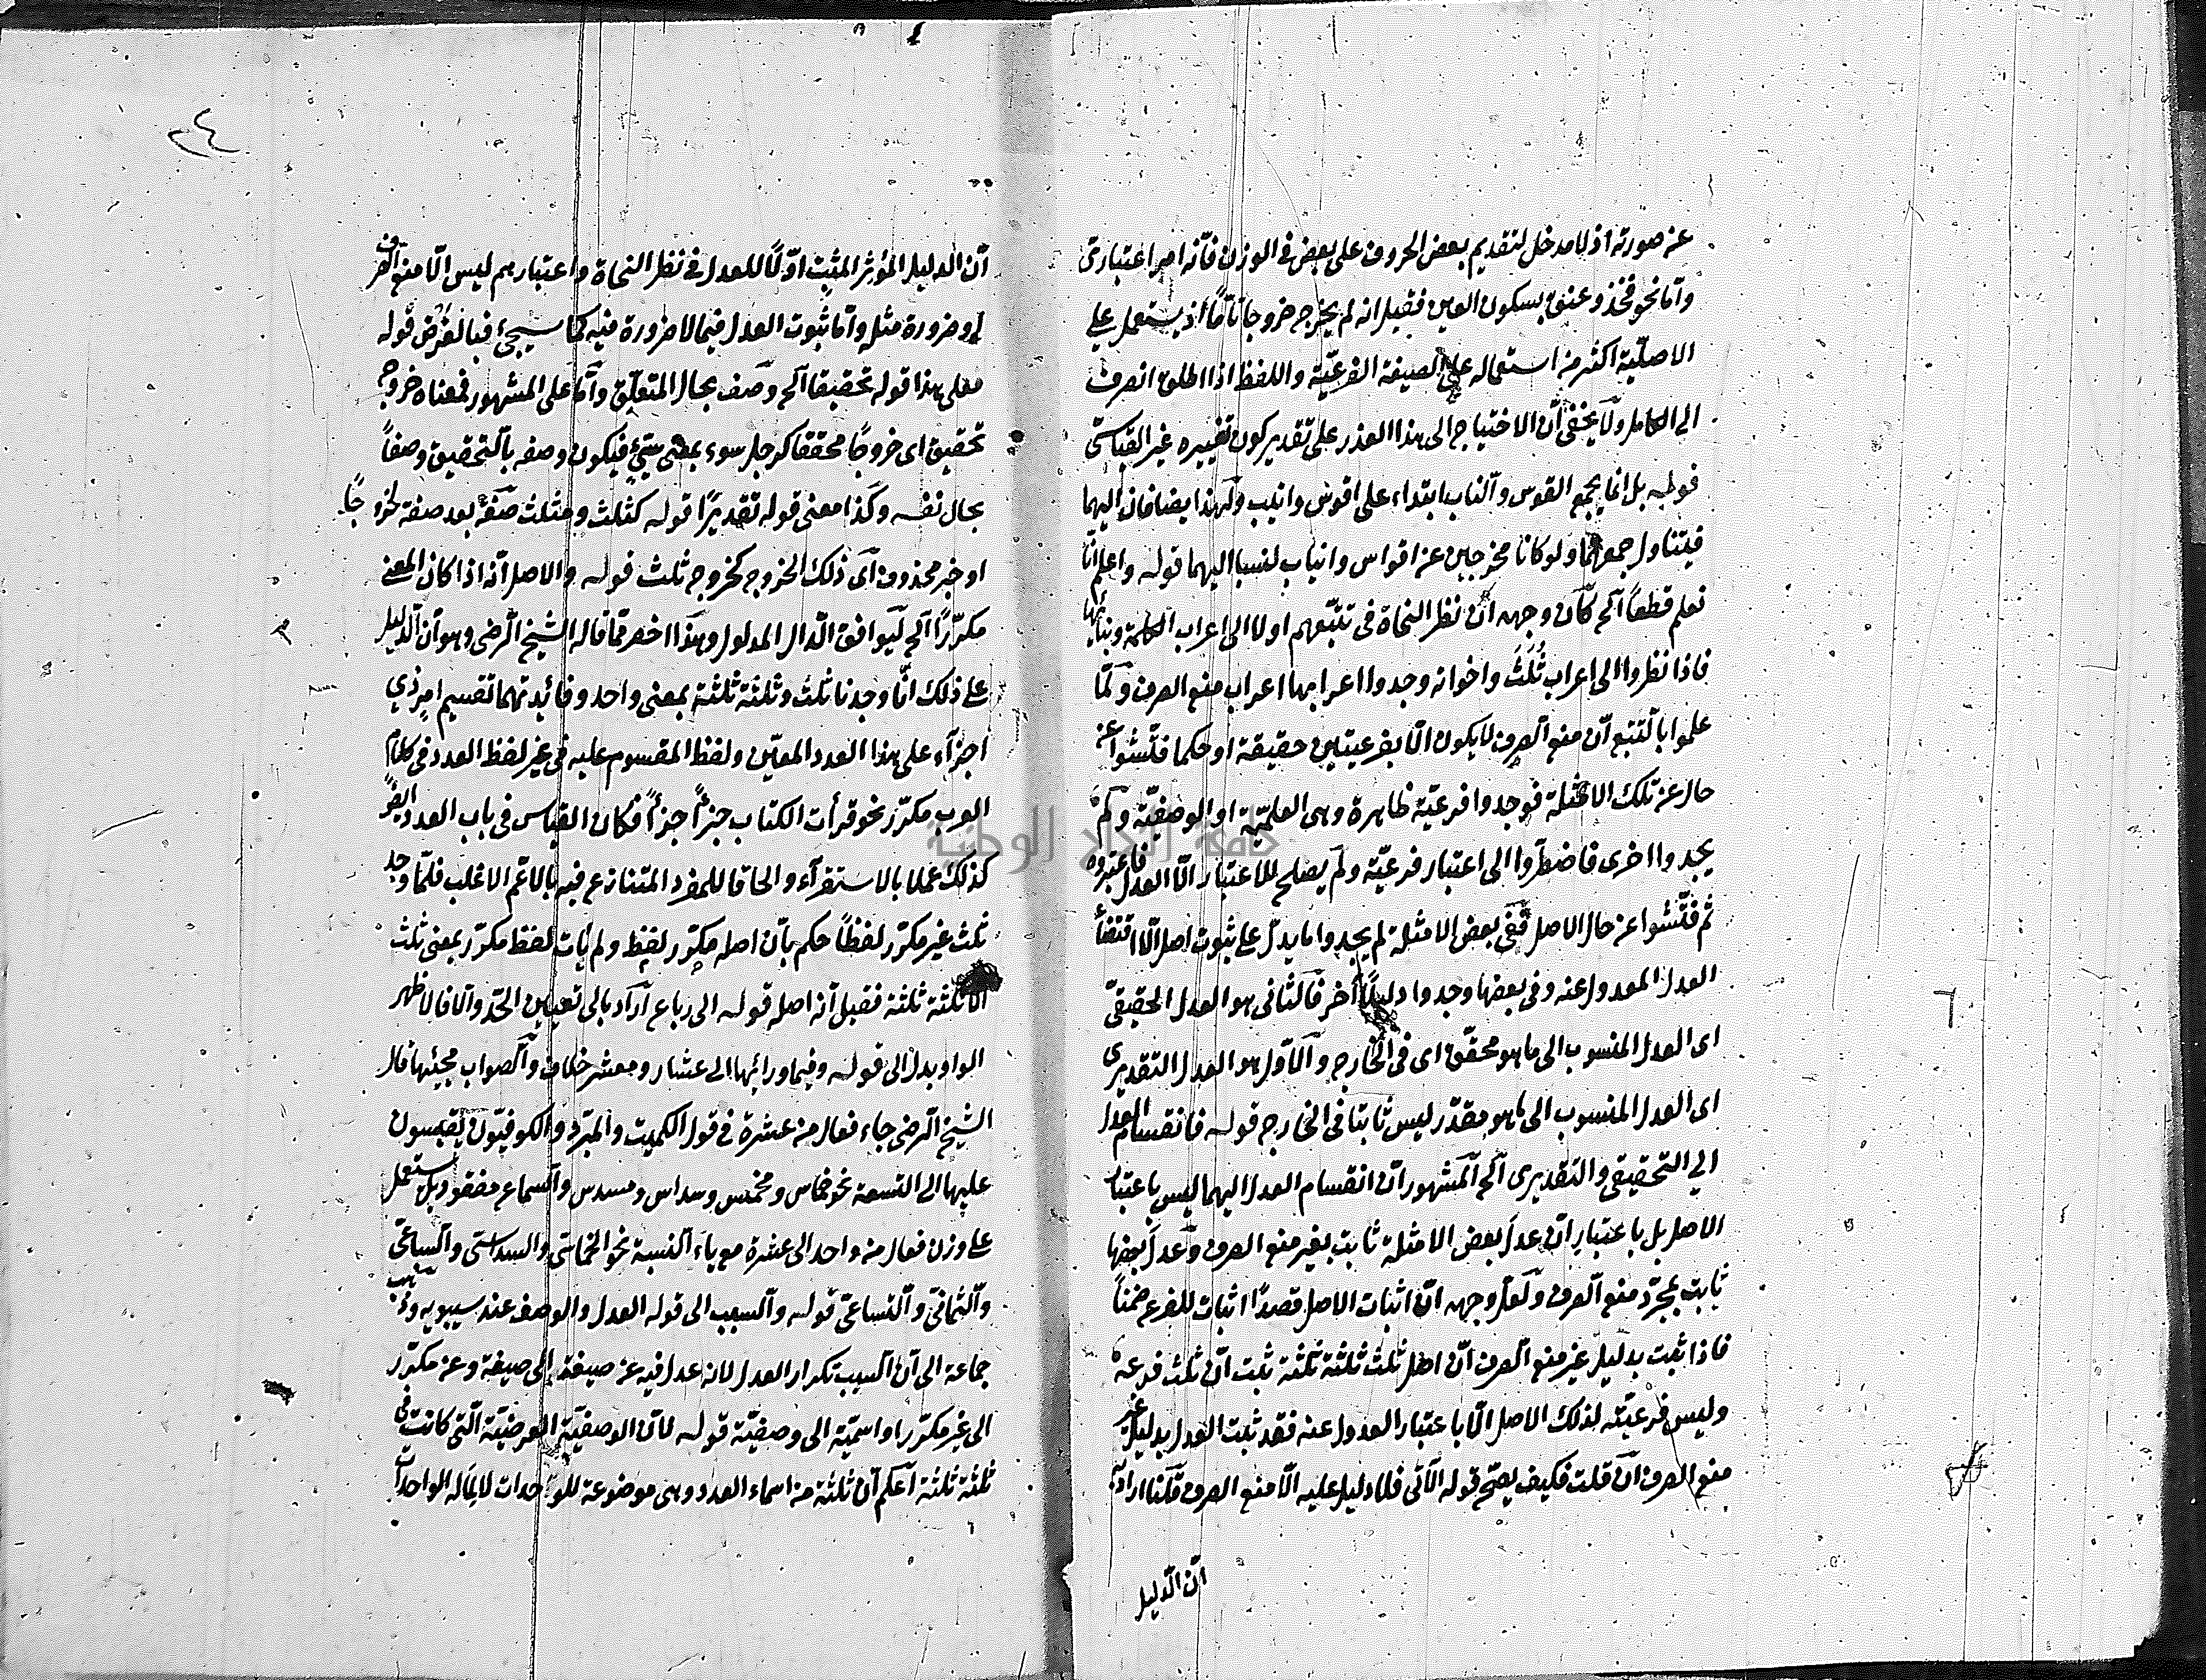 عن صورته اذ لا مدخل لتقديم بعض الحروف على بعض فى الوزن فانّه امر اعتبارىّ
وآما نحو فخذ وعنق بسكون العين فقيل انه لم يخرج خروجا تامّاً اذ يستعمل على
الاصليّة اكثر من استعماله على الصيغة الفرعيّة واللفظ اذا اطلق انصرف
الى الكامل ولا يخفى انّ الاحتياج الى هذا العذر على تقدير كون تغييره غير القياسىّ
قوله بل انما يجمع القوس والناب ابتداء على اقوس وانيب ولهذا يضافان اليهما
فيتناول جمعهما ولو كانا مخرجين عن اقواس وانياب لنسبا اليهما قوله واعلم انّا
نعلم قطعاً آلخ كانّ وجهه انّ نظر النحاة فى تتبّعهم اولا الى اعراب الكلمة وبنائها
فاذا نظروا الى اعراب ثُلَثُ واخواته وجدوا اعرابها اعراب منع الصرف ولمّا
علموا بالتتبع انّ منع الصرف لا يكون الّا بفرعيتين حقيقة او حكما فتّشوا عن
حال عن تلك الامثلة فوجدوا فرعيّة ظاهرة وهى العلميّة او الوصفيّة ولم
يجدوا اخرى فاضطرّوا الى اعتبار فرعيّة ولم يصلح للاعتبار الّا العدل فاعتبروه
ثم فتّشوا عن حال الاصل ففى بعض الامثلة لم يجدوا ما يدلّ على ثبوت اصل الّا اقتضأ
العدل المعدول عنه وفى بعضها وجدوا دليلاً آخر فالثانى هو العدل الحقيقىّ
اى العدل المنسوب الى ما هو محقّق اى فى الخارج والاوّل هو العدل التقديرى
اى العدل المنسوب الى ما هو مقدّر ليس ثابتا فى الخارج قوله فانقسام العدل
الى التحقيقى والتقديرى آلخ المشهور انّ انقسام العدل اليهما ليس باعتبار
الاصل بل باعتبار انّ عدل بعض الامثلة ثابت بغير منع الصرف وعدل بعضها
ثابت بمجرّد منع الصرف ولعلّ وجهه انّ اثبات الاصل قصداً اثبات للفرع ضمناً
فاذا ثبت بدليل غير منع الصرف انّ اصل ثلث ثلثة ثلثة ثبت انّ ثلث فرعه
وليس فرعيّته لذلك الاصل الّا باعتبار العدول عنه فقد ثبت العدل بدليل غير
منع الصرف انّ قلت فكيف يصحّ قوله الآتى فلا دليل عليه الّا منع الصرف قلنا اراد به
انّ الدليل
انّ الدليل المؤثر المثبت اوّلاً للعدل فى نظر النحاة واعتبارهم ليس الّا منع الصرف
او ضرورة مثله وآما ثبوت العدل فيما لا ضرورة فيه كما سيجئ فبالعرض قوله
فعلى هذا قوله تحقيقا آلخ وصف بحال المتعلّق وآما على المشهور فمعناه خروج
تحقيق اى خروجًا محققا كرجل سوء بمعنى سيّئ فيكون وصفه بالتحقيق وصفاً
بحال نفسه وكذا معنى قوله تقديرًا قوله كثلث ومثلث صفة بعد صفة لخروجًا
او خبر محذوف اى ذلك الخروج كخروج ثلث قوله والاصل انّه اذا كان المعنى
مكرّرًا آلخ ليوافق الدّال المدلول وهذا اخصر ممّا قاله الشيخ الرّضى وهو انّ الدّليل
على ذلك انّا وجدنا ثلث وثلثة ثلثة بمعنى واحد وفائدتهما تقسيم امر ذى
اجزآء على هذا العدد المعيّن ولفظ المقسوم عليه فى غير لفظ العدد فى كلام
العرب مكرّر نحو قرأت الكتاب جزأً جزأً فكان القياس فى باب العدد ايضاً
كذلك عملا بالاستقرآء والحاقا للمفرد المتنازع فيه بالاعمّ الاغلب فلمّا وجد
ثلث غير مكرّر لفظاً حكم بانّ اصله مكرّر لفظ ولم يأت لفظ مكرّر بمعنى ثلث
الّا ثلثة ثلثة فقيل انّه اصله قوله الى رباع اراد بالى تعيين الحدّ والّا فالاظهر
الواو بدل الى قوله وفيما ورائها الى عشار ومعشر خلاف والصواب مجيئها قال
الشيخ الرّضى جاء فعال من عشرة فى قول الكميت والمبرّد والكوفيّون يقيسون
عليها الى التسعة نحو خماس ومخمس وسداس ومسدس والسماع مفقود بل يستعمل
على وزن فعال من واحد الى عشرة مع ياء النسبة نحو الخماسىّ والسداسىّ والسباعىّ
والثمانىّ والتساعىّ قوله والسبب الى قوله العدل والوصف عند سيبويه وذهب
جماعة الى انّ السبب تكرار العدل لانه عدل فيه عن صيغة الى صيغة وعن مكرّر
الى غير مكرّر او اسميّة الى وصفيّة قوله لانّ الوصفيّة العرضيّة الّتى كانت فى
ثلثة ثلثة اعلم انّ ثلثة من اسماء العدد وهى موضوعة للواحدات لا لما له الواحدات